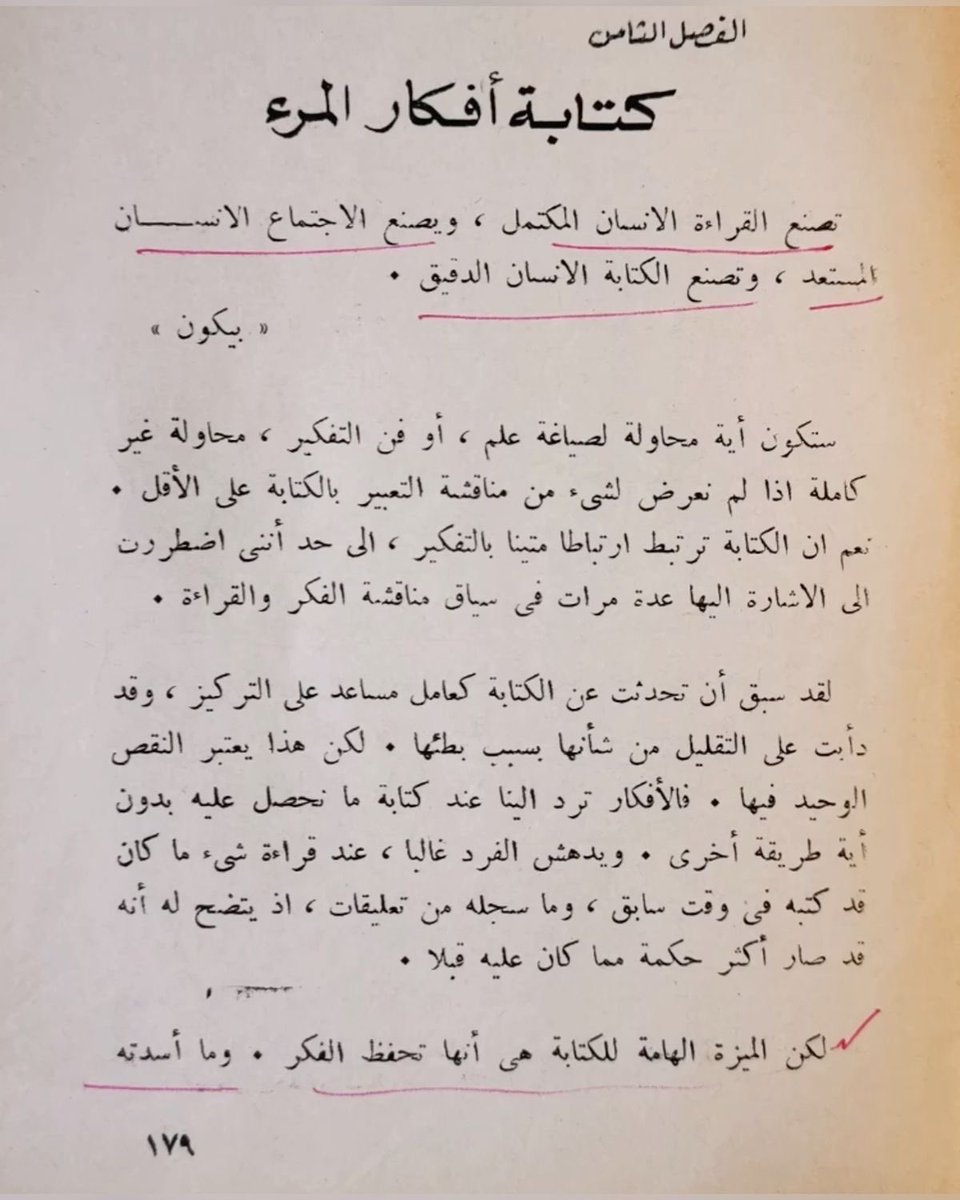 الفصل الثامن
كتابة أفكار المرء
تصنع القراءة الانسان المكتمل ، ويصنع الاجتماع الانسان
المستعد ، وتصنع الكتابة الانسان الدقيق .
« بيكون »
ستكون أية محاولة لصياغة علم ، أو فن التفكير ، محاولة غير
كاملة اذا لم نعرض لشىء من مناقشة التعبير بالكتابة على الأقل .
نعم ان الكتابة ترتبط ارتباطا متينا بالتفكير ، الى حد أننى اضطررت
الى الاشارة اليها عدة مرات فى سياق مناقشة الفكر والقراءة .
لقد سبق أن تحدثت عن الكتابة كعامل مساعد على التركيز ، وقد
دأبت على التقليل من شأنها بسبب بطئها . لكن هذا يعتبر النقص
الوحيد فيها . فالأفكار ترد الينا عند كتابة ما نحصل عليه بدون
أية طريقة أخرى . ويدهش الفرد غالبا ، عند قراءة شىء ما كان
قد كتبه فى وقت سابق ، وما سجله من تعليقات ، اذ يتضح له أنه
قد صار أكثر حكمة مما كان عليه قبلا .
لكن الميزة الهامة للكتابة هى أنها تحفظ الفكر . وما أسدته
١٧٩